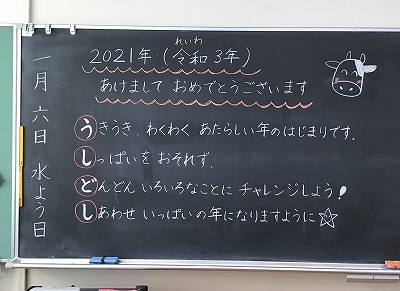 一月六日 水よう日
れいわ
2021年（令和3年）
あけまして おめでとうございます
うきうき、わくわく あたらしい年のはじまりです。
しっぱいを おそれず、
どんどん いろいろなことに チャレンジしよう!
しあわせ いっぱいの年になりますように☆